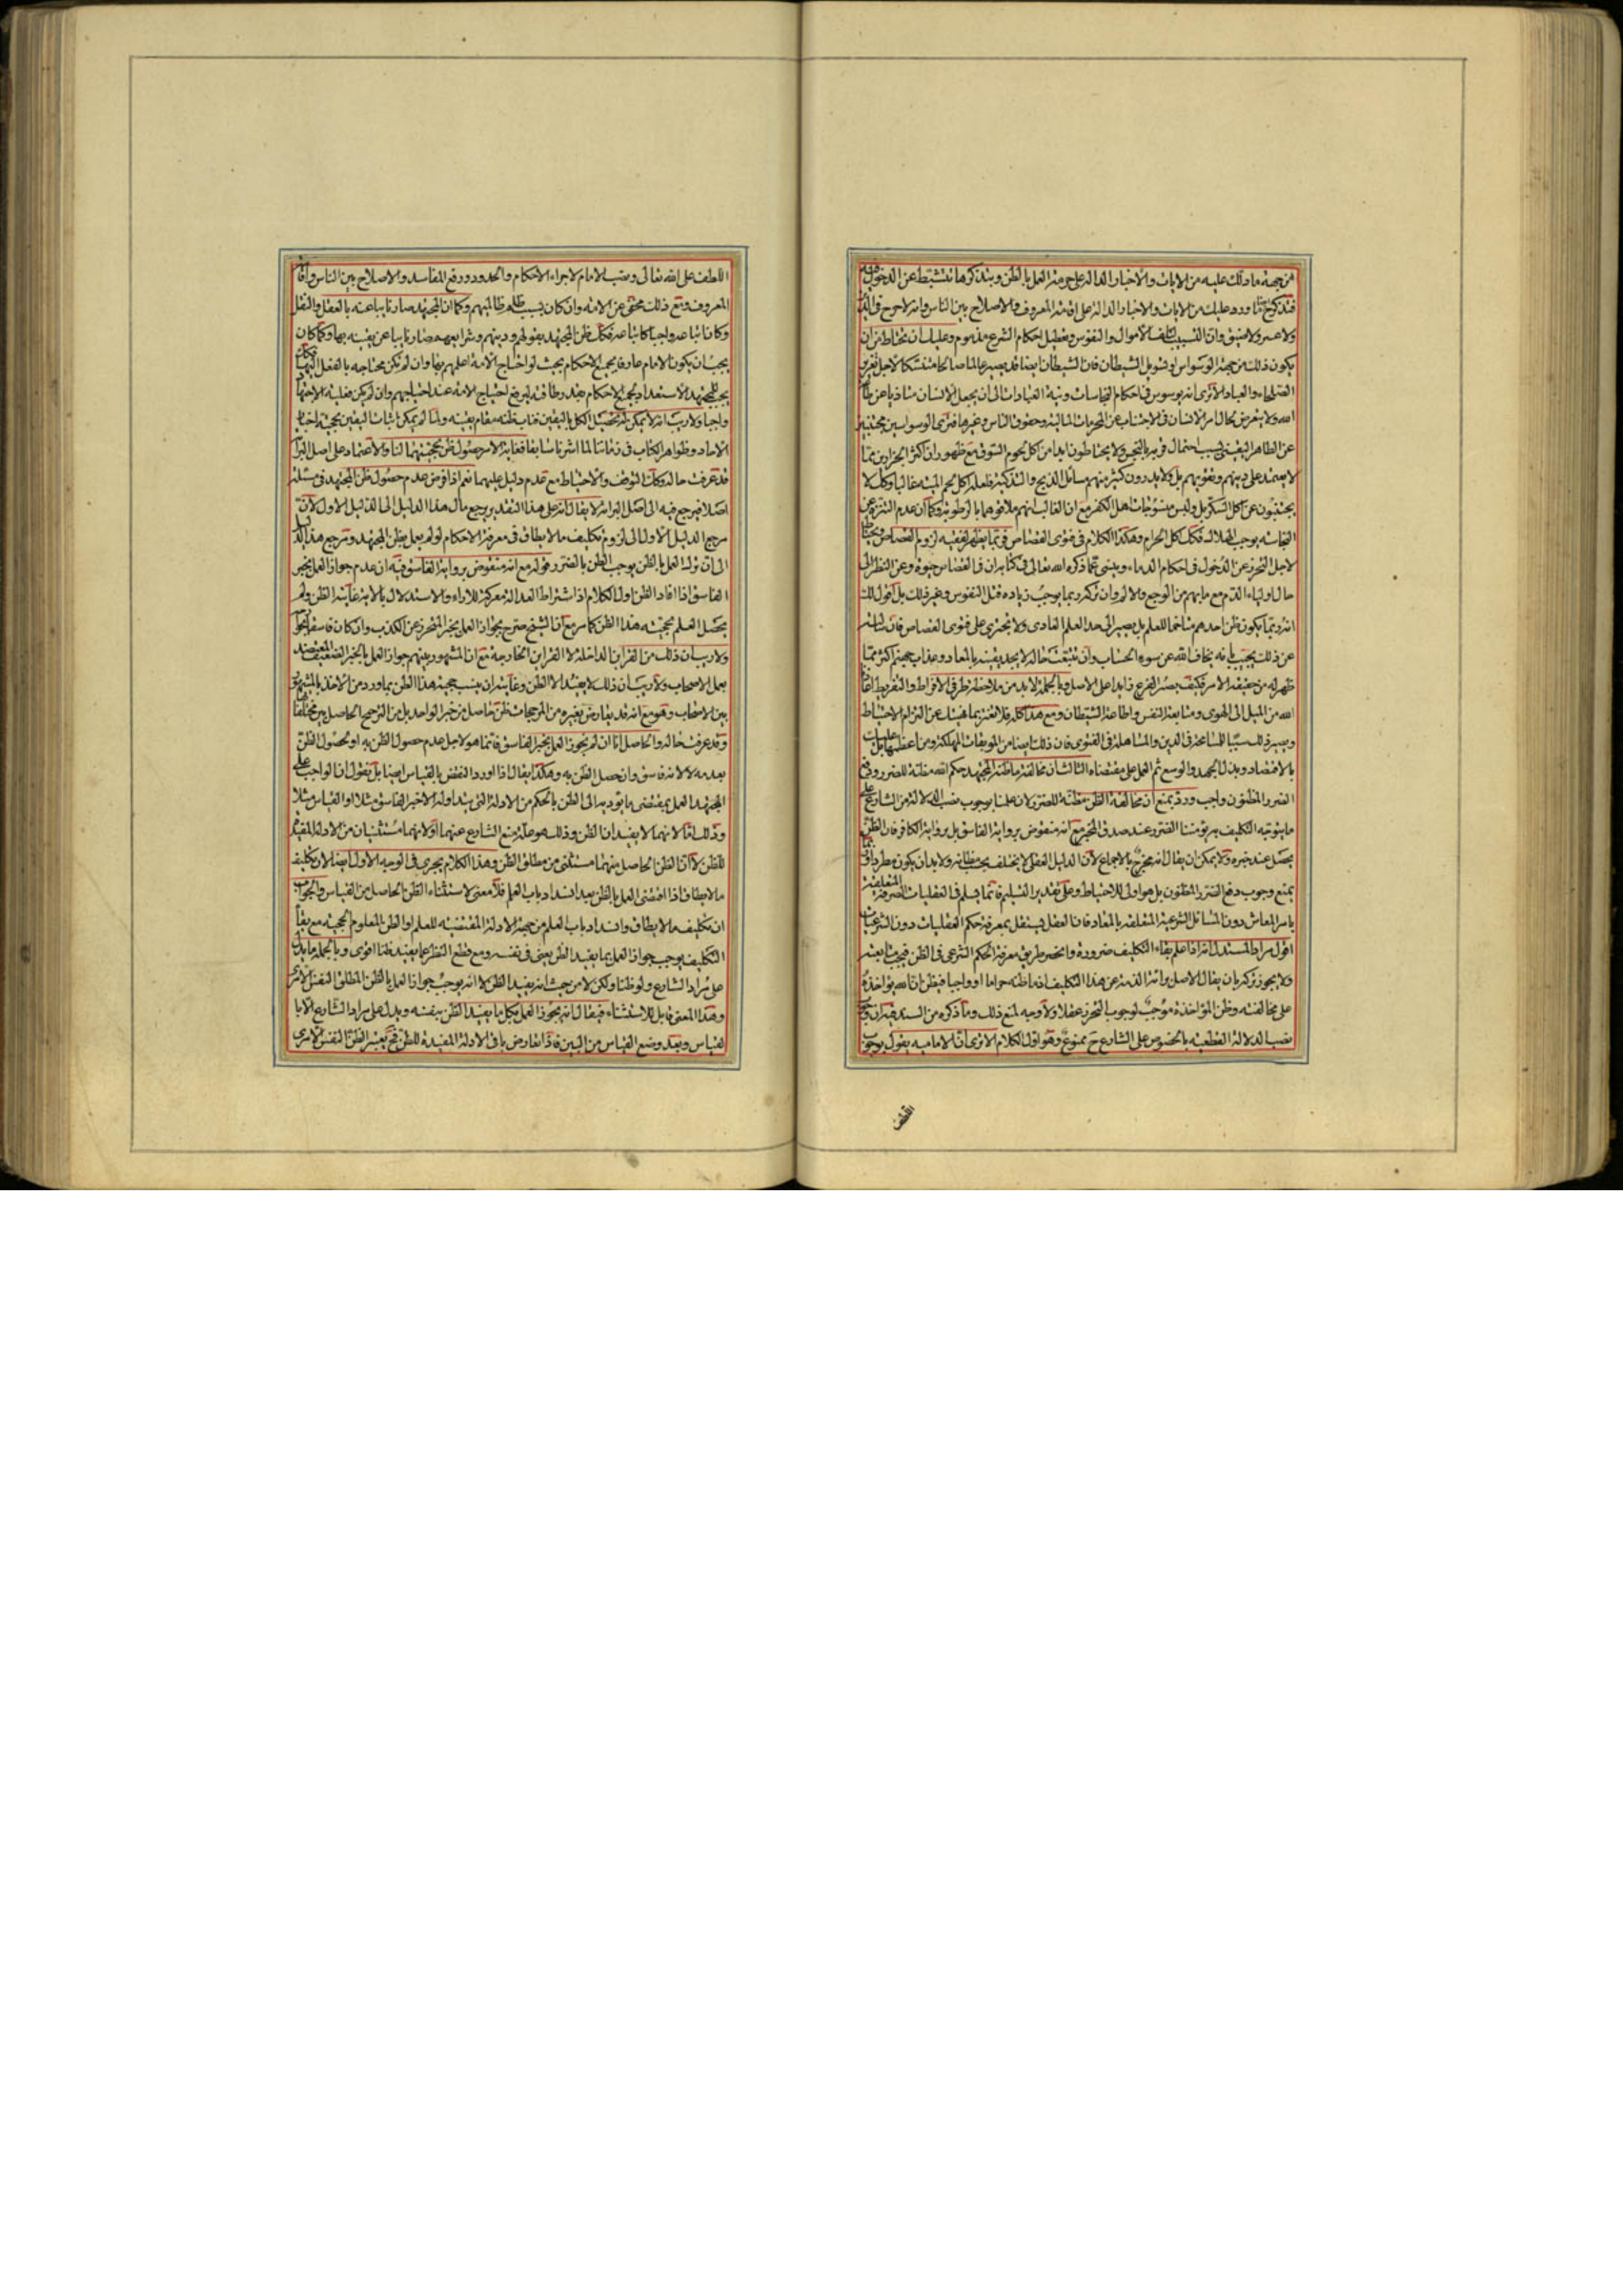 من جهة ما دلك عليه من الايات والاخبار الدالة على حرمة العمل بالظن وبتذكرها تتثبط عن الدخول فيه
فتذكر ما ورد عليك من الايات والاخبار الدالة على اقامة المعروف والاصلاح بين الناس وانه لا حرج في الدين
ولا عسر ولا ضيق وان التسبيب لتلف الأموال والنفوس وتعطيل احكام الشرع مذموم وعليك ان تحتاط من ان
يكون ذلك من جهة الوسواس او تسويل الشيطان فان الشيطان ايضا قد يصير عالما صالحا متنسكا لاجل تغرير
الصلحاء والعباد الا ترى انه يوسوس في احكام النجاسات ونية العبادات الى ان يجعل الانسان متاذيا عن طاعة
الله ولا يتعرض بحال امر الانسان في الاجتناب عن المحرمات المالية وحقوق الناس وغيرها فترى الوسواسين مجتنبين
عن الطاهر اليقيني بسبب احتمال قربه بالنجس ولا يحتاطون ابدا من اكل لحوم السوق مع ظهور ان اكثر الجزارين مما
لا يعتمد على دينهم وتقويهم بل ولا يدرون كثير منهم مسائل الذبح والتذكية فلعله اكل لحم الميتة غالبا وكك لا
يجتنبون عن اكل السكر بل ولبس منسوجات اهل الكفر مع ان الغالب انهم ملاقوهما بالرطوبة وكما ان عدم التنزه عن
النجاسة يوجب الهلاك فكك اكل الحرام وهكذا الكلام في فتوى القصاص فربما يظهر لفقيه لزوم القصاص ويحتاط
لاجل التحرز عن الدخول في احكام الدماء وينسى عما ذكره الله تعالى في كتابه ان في القصاص حيوة وعن النظر الى
حال اولياء الدم مع ما بهم من الوجع والالم وان تركه ربما يوجب زيادة قتل النفوس وغير ذلك بل اقول لك
انه ربما يكون ظن احدهم متاخما للعلم بل يصير الى حد العلم العادى ولا يجترى على فتوى القصاص فان سئلته
عن ذلك يجيب بانه يخاف الله عن سوء الحساب وان تتبعت حاله لا يجد يقينه بالمعاد وعذاب جهنم اكثر مما
ظهر له من حقيقة الامر فكيف يصير الفرع زايدا على الاصل وبالجملة لابد من ملاحظة طرفي الافراط والتفريط اعاذنا
الله من الميل الى الهوى ومتابعة النفس واطاعة الشيطان ومع هذا كله فلا تغتر بما نبهتك عن التزام الاحتياط
ويصير ذلك سببا للمسامحة في الدين والمساهلة في الفتوى فان ذلك ايضا من الموبقات المهلكة ومن اعظمها عليك
بالاقتصاد وبذل الجهد والوسع ثم العمل على مقتضاه الثالث ان مخالفة ما ظنه المجتهد حكم الله مظنة للضرر ودفع
الضرر المظنون واجب ورد بمنع ان مخالفة الظن مظنة للضرر لان علمنا بوجوب نصب الدلالة من الشارع على
ما يتوجه التكليف به يؤمننا الضرر عند صدق المخبر مع انه منقوض برواية الفاسق بل برواية الكافر فان الظن
يحصل عند خبره ولا يمكن ان يقال انه مخرج بالاجماع لان الدليل العقلي لا يختلف بحسب مظانه ولا بد ان يكون مطردا
بمنع وجوب دفع الضرر المظنون بل هو اولى للاحتياط وعلى تقدير التسليم فانما يسلم في العقليات الصرفة المتعلقة
بامر المعاش دون المسائل الشرعية المتعلقة بالمعاد فان العقل يستقل بمعرفة حكم العقليات دون الشرعيات
اقول مراد المستدل انه اذا علم بقاء التكليف ضرورة وانحصر طريق معرفة الحكم الشرعي في الظن فيجب متابعته
ولا يجوز تركه بان يقال الاصل براءة الذمة عن هذا التكليف اذ ما ظنه حراما او واجبا فيظن ان الله يؤاخذه
على مخالفته وظن المؤاخذة موجب لوجوب التحرز عقلا ولا وجه لمنع ذلك وما ذكره من السند فيه ان وجوب
نصب الدلالة القطعية بالخصوص على الشارع ح ممنوع وهو اول الكلام الا ترى ان الامامية يقول بوجوب
اللطف
اللطف على الله تعالى ونصب الامام لاجراء الاحكام والحدود ورفع المفاسد والاصلاح بين الناس واقامة
المعروف ومع ذلك مختف عن الامة وان كان بسبب ظلم ظالميهم وكما ان المجتهد صار نايبا عنه بالعقل والنقل
وكان اتباعه واجبا كاتباعه فكك ظن المجتهد بقولهم ودينهم وشرايعهم صار نايبا عن يقينه بها وكما كان
يجب ان يكون الامام عارفا بجميع الاحكام بحيث لو احتاج الامة اعلمهم بها وان لم يكن محتاجه بالفعل اليها فكك
يجب للمجتهد الاستعداد بجميع الاحكام بقدر طاقته ليرفع احتياج الامة عند احتياجهم وان لم يكن فعلية الاجتهاد
واجبا ولا ريب انه لا يمكن له تحصيل الكل باليقين فناب ظنه مقام يقينه ولما لم يمكن اثبات اليقين بحجية اخبار
الآحاد وظواهر الكتاب في زماننا لما اشرنا سابقا فغاية الامر حصول ظن بحجيتهما لنا والاعتماد على اصل البراءة
قد عرفت حاله وكك التوقف والاحتياط مع عدم دليل عليهما نعم اذا فرض عدم حصول ظن المجتهد في مسئلة
اصلا فيرجع فيه الى اصل البراءة لا يقال انه على هذا التقدير يرجع مآل هذا الدليل الى الدليل الاول لان
مرجع الدليل الاول الى لزوم تكليف ما لا يطاق في معرفة الاحكام لو لم يعمل بظن المجتهد ومرجع هذا الدليل
الى ان ترك العمل بالظن يوجب الظن بالضرر وقوله مع انه منقوض برواية الفاسق فيه ان عدم جواز العمل بخبر
الفاسق اذا افاد الظن اول الكلام اذ اشتراط العدالة معركة للاراء والاستدلال بالآية غايته الظن ولم
يحصل العلم بحجية هذا الظن كما مر مع ان الشيخ صرح بجواز العمل بخبر المتحرز عن الكذب وان كان فاسقا بجوارحه
ولا ريب ان ذلك من القراين الداخلة لا القراين الخارجة مع ان المشهور بينهم جواز العمل بالخبر الضعيف المعتضد
بعمل الاصحاب ولا ريب ان ذلك لا يفيد الا الظن وغايته ان ينسب حجية هذا الظن بما ورد من الاخذ بالمشتهر
بين الاصحاب وهو مع انه قد يعارض بغيره من المرجحات ظن حاصل من خبر الواحد بل من الترجيح الحاصل بين مختلفاتها
وقد عرفت حاله والحاصل انا ان لم نجوز العمل بخبر الفاسق فانما هو لاجل عدم حصول الظن به او لحصول الظن
بعدمه لا لانه فاسق وان حصل الظن به وهكذا يقال اذا اورد النقض بالقياس ايضا بل نقول ان الواجب على
المجتهد العمل بمقتضى ما يؤديه الى الظن بالحكم من الادلة التي يتداوله الا خبر الفاسق مثلا او القياس مثلا
وذلك اما لانهما لا يفيدان الظن وذلك هو علة منع الشارع عنهما او لانهما مستثنيان من الادلة المفيدة
للظن لا ان الظن الحاصل منهما مستثنى من مطلق الظن وهذا الكلام يجرى في الوجه الاول ايضا لان تكليف
ما لا يطاق اذا اقتضى العمل بالظن بعد انسداد باب العلم فلا معنى لاستثناء الظن الحاصل من القياس والجواب
ان تكليف ما لا يطاق وانسداد باب العلم من جهة الادلة المقتضية للعلم او الظن المعلوم الحجية مع بقاء
التكليف يوجب جواز العمل بما يفيد الظن يعنى في نفسه ومع قطع النظر عما يفيد ظنا اقوى وبالجملة ما يدل
على مراد الشارع ولو ظنا ولكن لا من حيث انه يفيد الظن لا انه يوجب جواز العمل بالظن المطلق النفس الامرى
وهذا المعنى قابل للاستثناء فيقال انه يجوز العمل بكل ما يفيد الظن بنفسه ويدل على مراد الشارع الا بالقياس
وبعد وضع القياس من البين فاذا تعارض باقي الادلة المفيدة للظن فح يعتبر الظن النفس الامرى